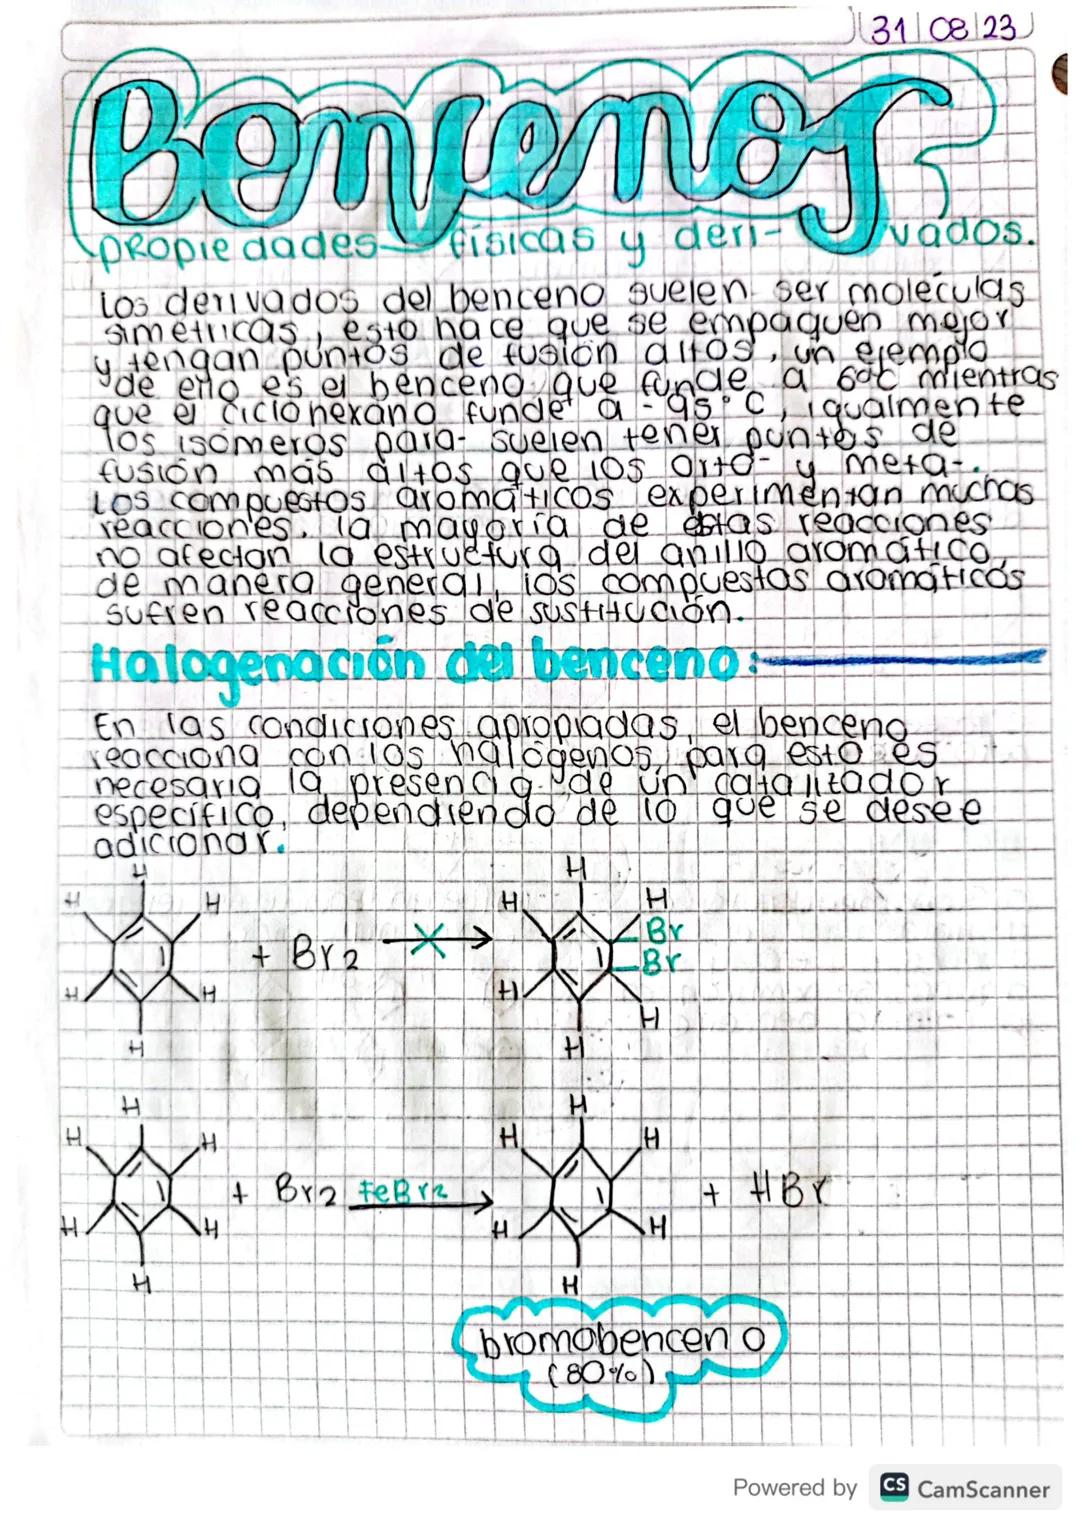 31 08 23
Bencenos
propiedades físicas y deri-vados.
Los derivados del benceno suelen ser moléculas
simétricas, esto hace que se empaquen mejor
y tengan puntos de fusión altos, un ejemplo
de ello es el benceno que funde a 6°C mientras
que el ciclohexano funde a -95°C, igualmente
los isómeros para- suelen tener puntos de
fusión más altos que los orto- y meta-.
Los compuestos aromáticos experimentan muchas
reacciones, la mayoría de estas reacciones
no afectan la estructura del anillo aromático,
de manera general, los compuestos aromáticos
sufren reacciones de sustitución.
Halogenación del benceno:
En las condiciones apropiadas, el benceno
reacciona con los halógenos, para esto es
necesaria la presencia de un catalitador
específico, dependiendo de lo que se desee
adicionar.
H H
H H H H
+ Br2 X Br
Br
H H H H
H H
H H
H H H H
+ Br2 FeBr2 + HBr
H H H H
H H
bromobenceno
(80%)
Powered by CS CamScanner